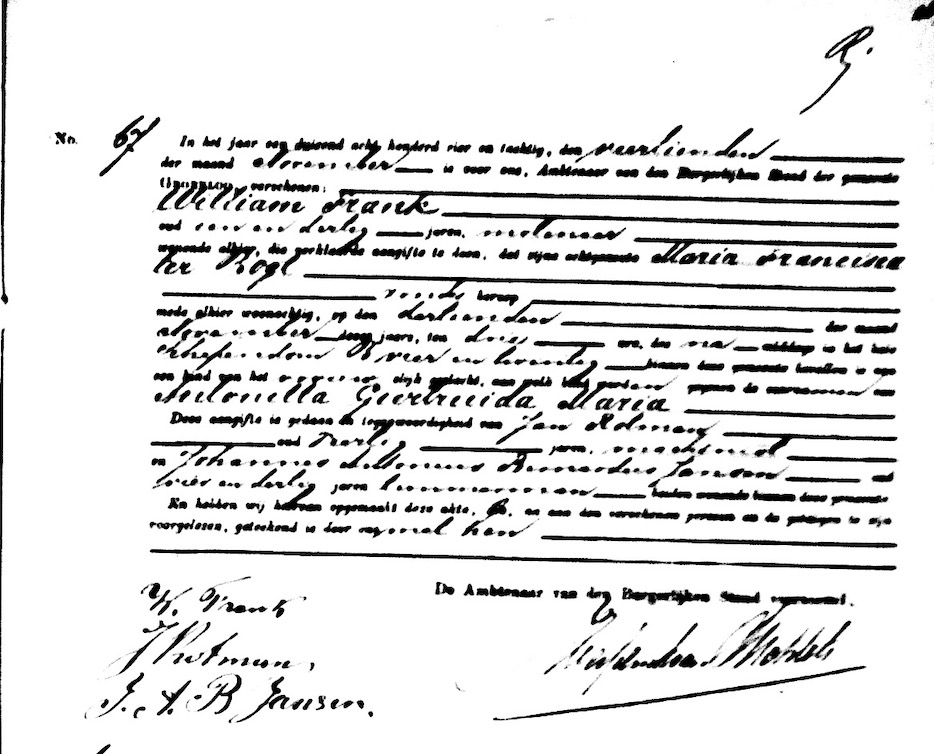 R.
No. 67 In het jaar een duizend acht honderd vier en tachtig, den veertienden
der maand November is voor ons, Ambtenaar van den Burgerlijken Stand der gemeente
verschenen:
William Frank
oud een en dertig jaren, molenaar
wonende alhier, die verklaarde aangifte te doen, dat zijne echtgenoote Maria Francisca
ter Bogt
zonder beroep
mede alhier woonachtig, op den dertienden der maand
November dezes jaars, ten drie ure, des na middags in het huis
vier en twintig binnen deze gemeente bevallen is van
een kind van het vrouwelijk geslacht, aan welk kind worden gegeven de voornamen van
Antonetta Geertruida Maria
Deze aangifte is gedaan in tegenwoordigheid van Jan Rotman
oud dertig jaren, machinist
en Johannes Antonius Bernardus Jansen oud
vier en dertig jaren timmerman beiden wonende binnen deze gemeente
En hebben wij hiervan opgemaakt deze akte, die, na aan den verschenen persoon en de getuigen te zijn
voorgelezen, geteekend is door ons met hen
De Ambtenaar van den Burgerlijken Stand voornoemd.
W. Frank
J Rotman.
J. A. B Jansen.